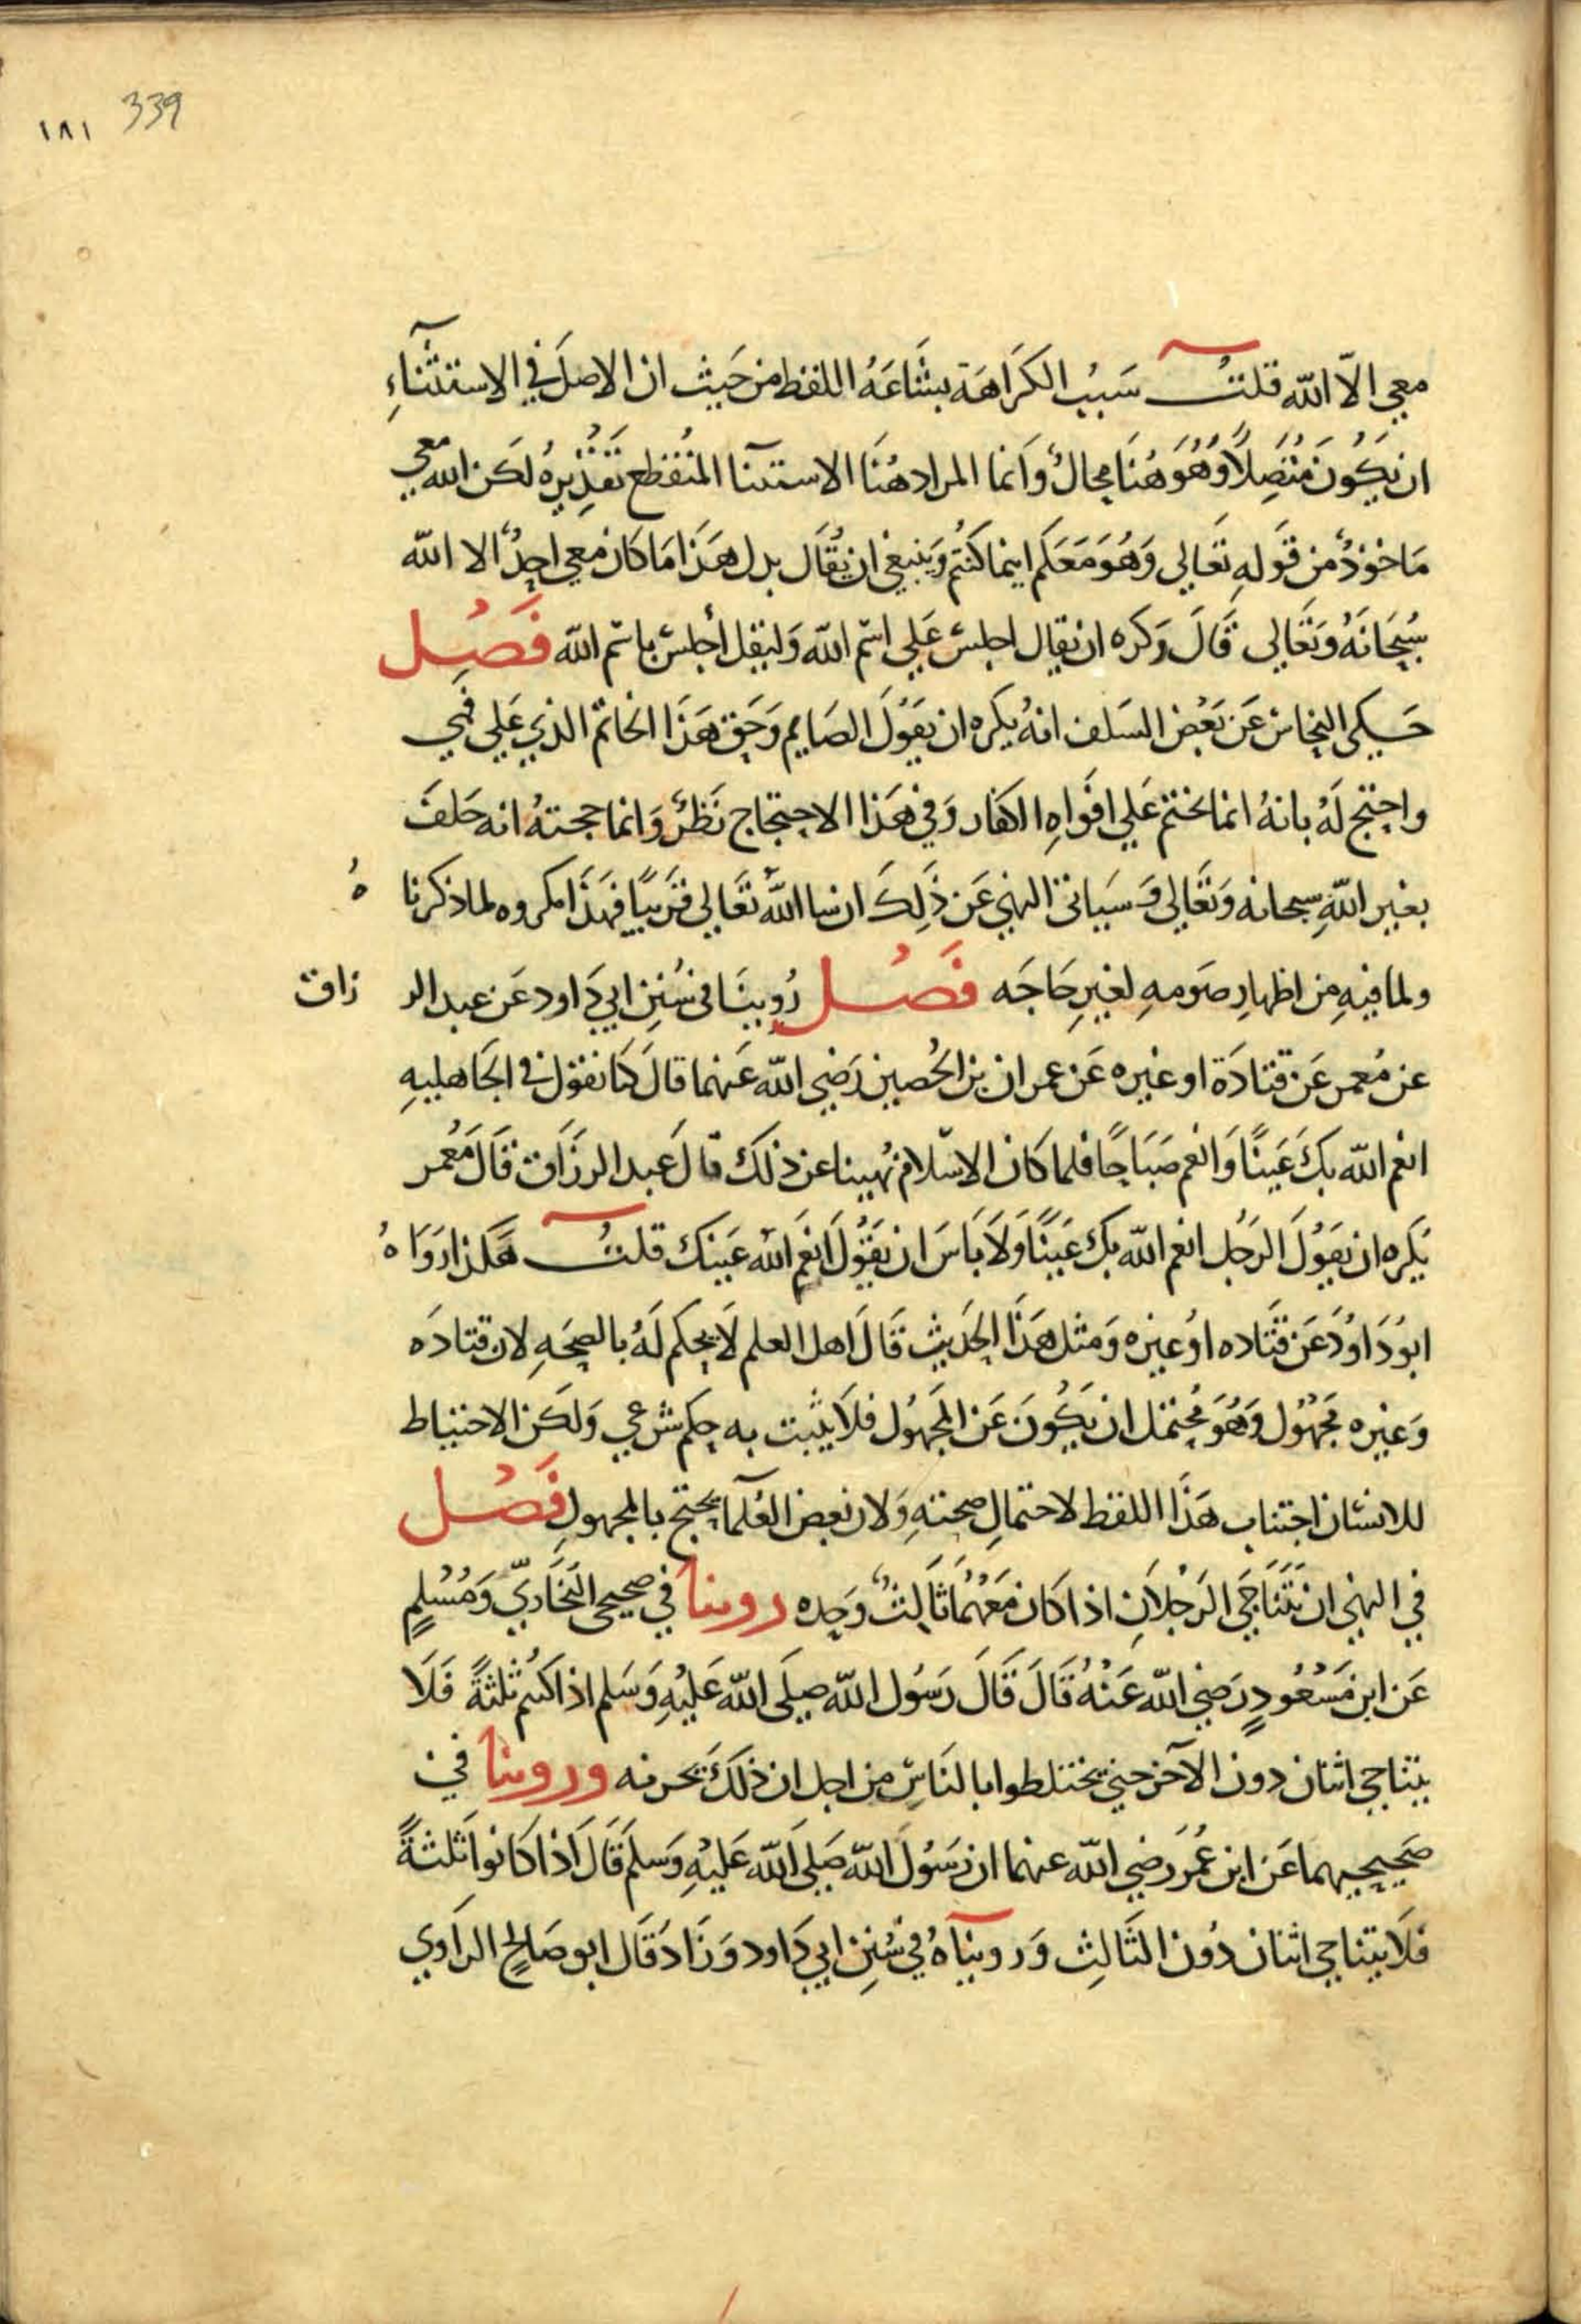 339 ١٨١
معي الّا الله قلتُ سَبَبُ الكَرَاهَة بشَاعَهُ اللفظ من حَيث ان الاصلَ في الاستثنآءِ
ان يَكُون مُتّصِلاً وَهُوَ هُنَا محالٌ وَانما المراد هُنَا الاستثنا المنُقطع تَقدِيرهُ لكَن الله معي
مَاخوذٌ من قَولهِ تَعَالي وَهُوَ مَعَكم اينما كنُتُم وَينبغي ان يُقَال بدل هَذا مَا كان معي احدٌ الا الله
سُبحَانَهُ وَتَعَالى قَالَ وَكره ان يقال اجلس عَلي اسم الله وَليقل أجلس باسم الله فَصْل
حَكى النحاس عَن بَعْض السَلف انهُ يكره ان يَقوُلَ الصَايم وَحَق هَذا الخاتم الذي عَلي فمي
واحتج لَهُ بانهُ انما يختم عَلي افوَاهِ الكفار وَفي هَذا الاحتجاج نَظرٌ وَانما حجتهُ انه حَلفَ
بغير اللهِ سبحانه وَتَعَالي وَسَيَاتي النهي عَن ذَلِكَ ان شا اللهُ تعَالي قَريبًا فهَذَا مكروه لما ذكرنا هُ
ولما فيهِ من اظهارِ صَومهِ لغيرِ حَاجَه فَصْل رُوينَا في سُنِن ابي دَاود عَن عبد الر زاق
عن مُعمر عَن قتادَة او غيره عَن عمران بن الحُصين رَضي الله عَنهما قالَ كنَا نقول في الجَاهليهِ
انعم الله بكَ عَينًا وَانعم صَبَاحًا فلما كان الاسْلام نُهينا عن ذلكَ قالَ عبد الرزَاق قَالَ مَعْمر
يُكره ان يَقوُلَ الرجُل انعم الله بكَ عَينًا وَلَا بَاسَ ان يَقوُل انعَم الله عَينك قلتُ هَكذا رَوَا هُ
ابوُ دَاوُدَ عَن قتَاده اوُ غيره وَمثل هَذا الحَديث قَالَ اهل العلم لَا يحكم لَهُ بالصحَهِ لان قتادَه
وَغيره مجَهُول وَهُوَ مُحتمَل ان يَكُونَ عَن المجَهُول فلَا يثبت به حكم شرعي وَلكن الاحتياط
للانسَان اجتناب هَذا اللفظ لاحتمالِ صحتهِ وَلان بعض العُلمآ يحتج بالمجهولِ فَصْل
في النهي ان يَتَناجَي الرَجُلاَنِ اذا كان مَعَهُمَا ثَالثٌ وَحده روينا في صحيحي البُخَاريّ وَمُسْلمٍ
عَن ابن مَسْعُودٍ رَضي الله عَنْهُ قَالَ قَالَ رَسُول الله صلَى الله عَليْهِ وَسَلم اذا كنتم ثلثةً فَلَا
يتناجي اثنان دون الآخر حتي يختلطوا بالنَاسِ من اجل ان ذلكَ يحزنه وروينا في
صَحيحيهما عَن ابن عُمَرَ رَضي الله عنهما ان رَسُولَ الله صَلي الله عَليْهِ وَسَلمَ قَالَ اذا كانوا ثلثةً
فلَا يتناجي اثنان دُون الثَالثِ وَروينآهُ في سُننِ ابي دَاود وَزَادَ قَال ابو صَالح الرَاوي